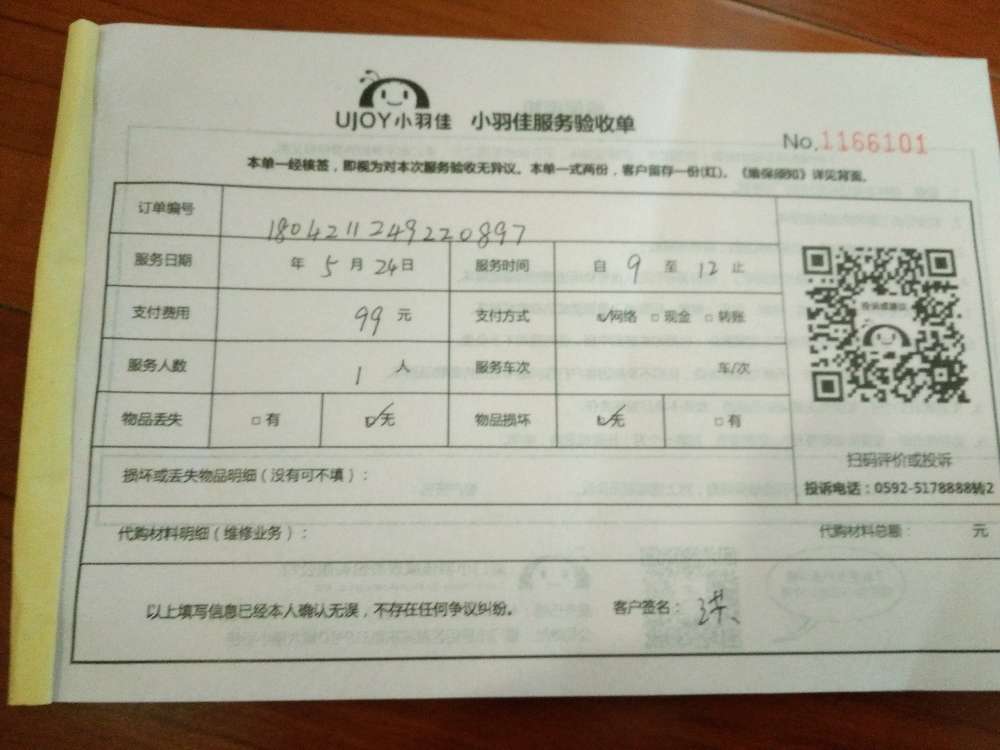 UJOY小羽佳 小羽佳服务验收单
No.1166101
本单一经核签，即视为对本次服务验收无异议。本单一式两份，客户留存一份(红)。《维保须知》详见背面。
订单编号 1804211249220897
服务日期 年 5 月 24 日 服务时间 自 9 至 12 止
支付费用 99 元 支付方式 ☑网络 □现金 □转账
服务人数 1 人 服务车次 车/次
物品丢失 □有 ☑无 物品损坏 ☑无 □有
投诉或建议
扫码评价或投诉
投诉电话：0592-5178888转2
损坏或丢失物品明细（没有可不填）：
代购材料明细（维修业务）： 代购材料总额： 元
以上填写信息已经本人确认无误，不存在任何争议纠纷。 客户签名：